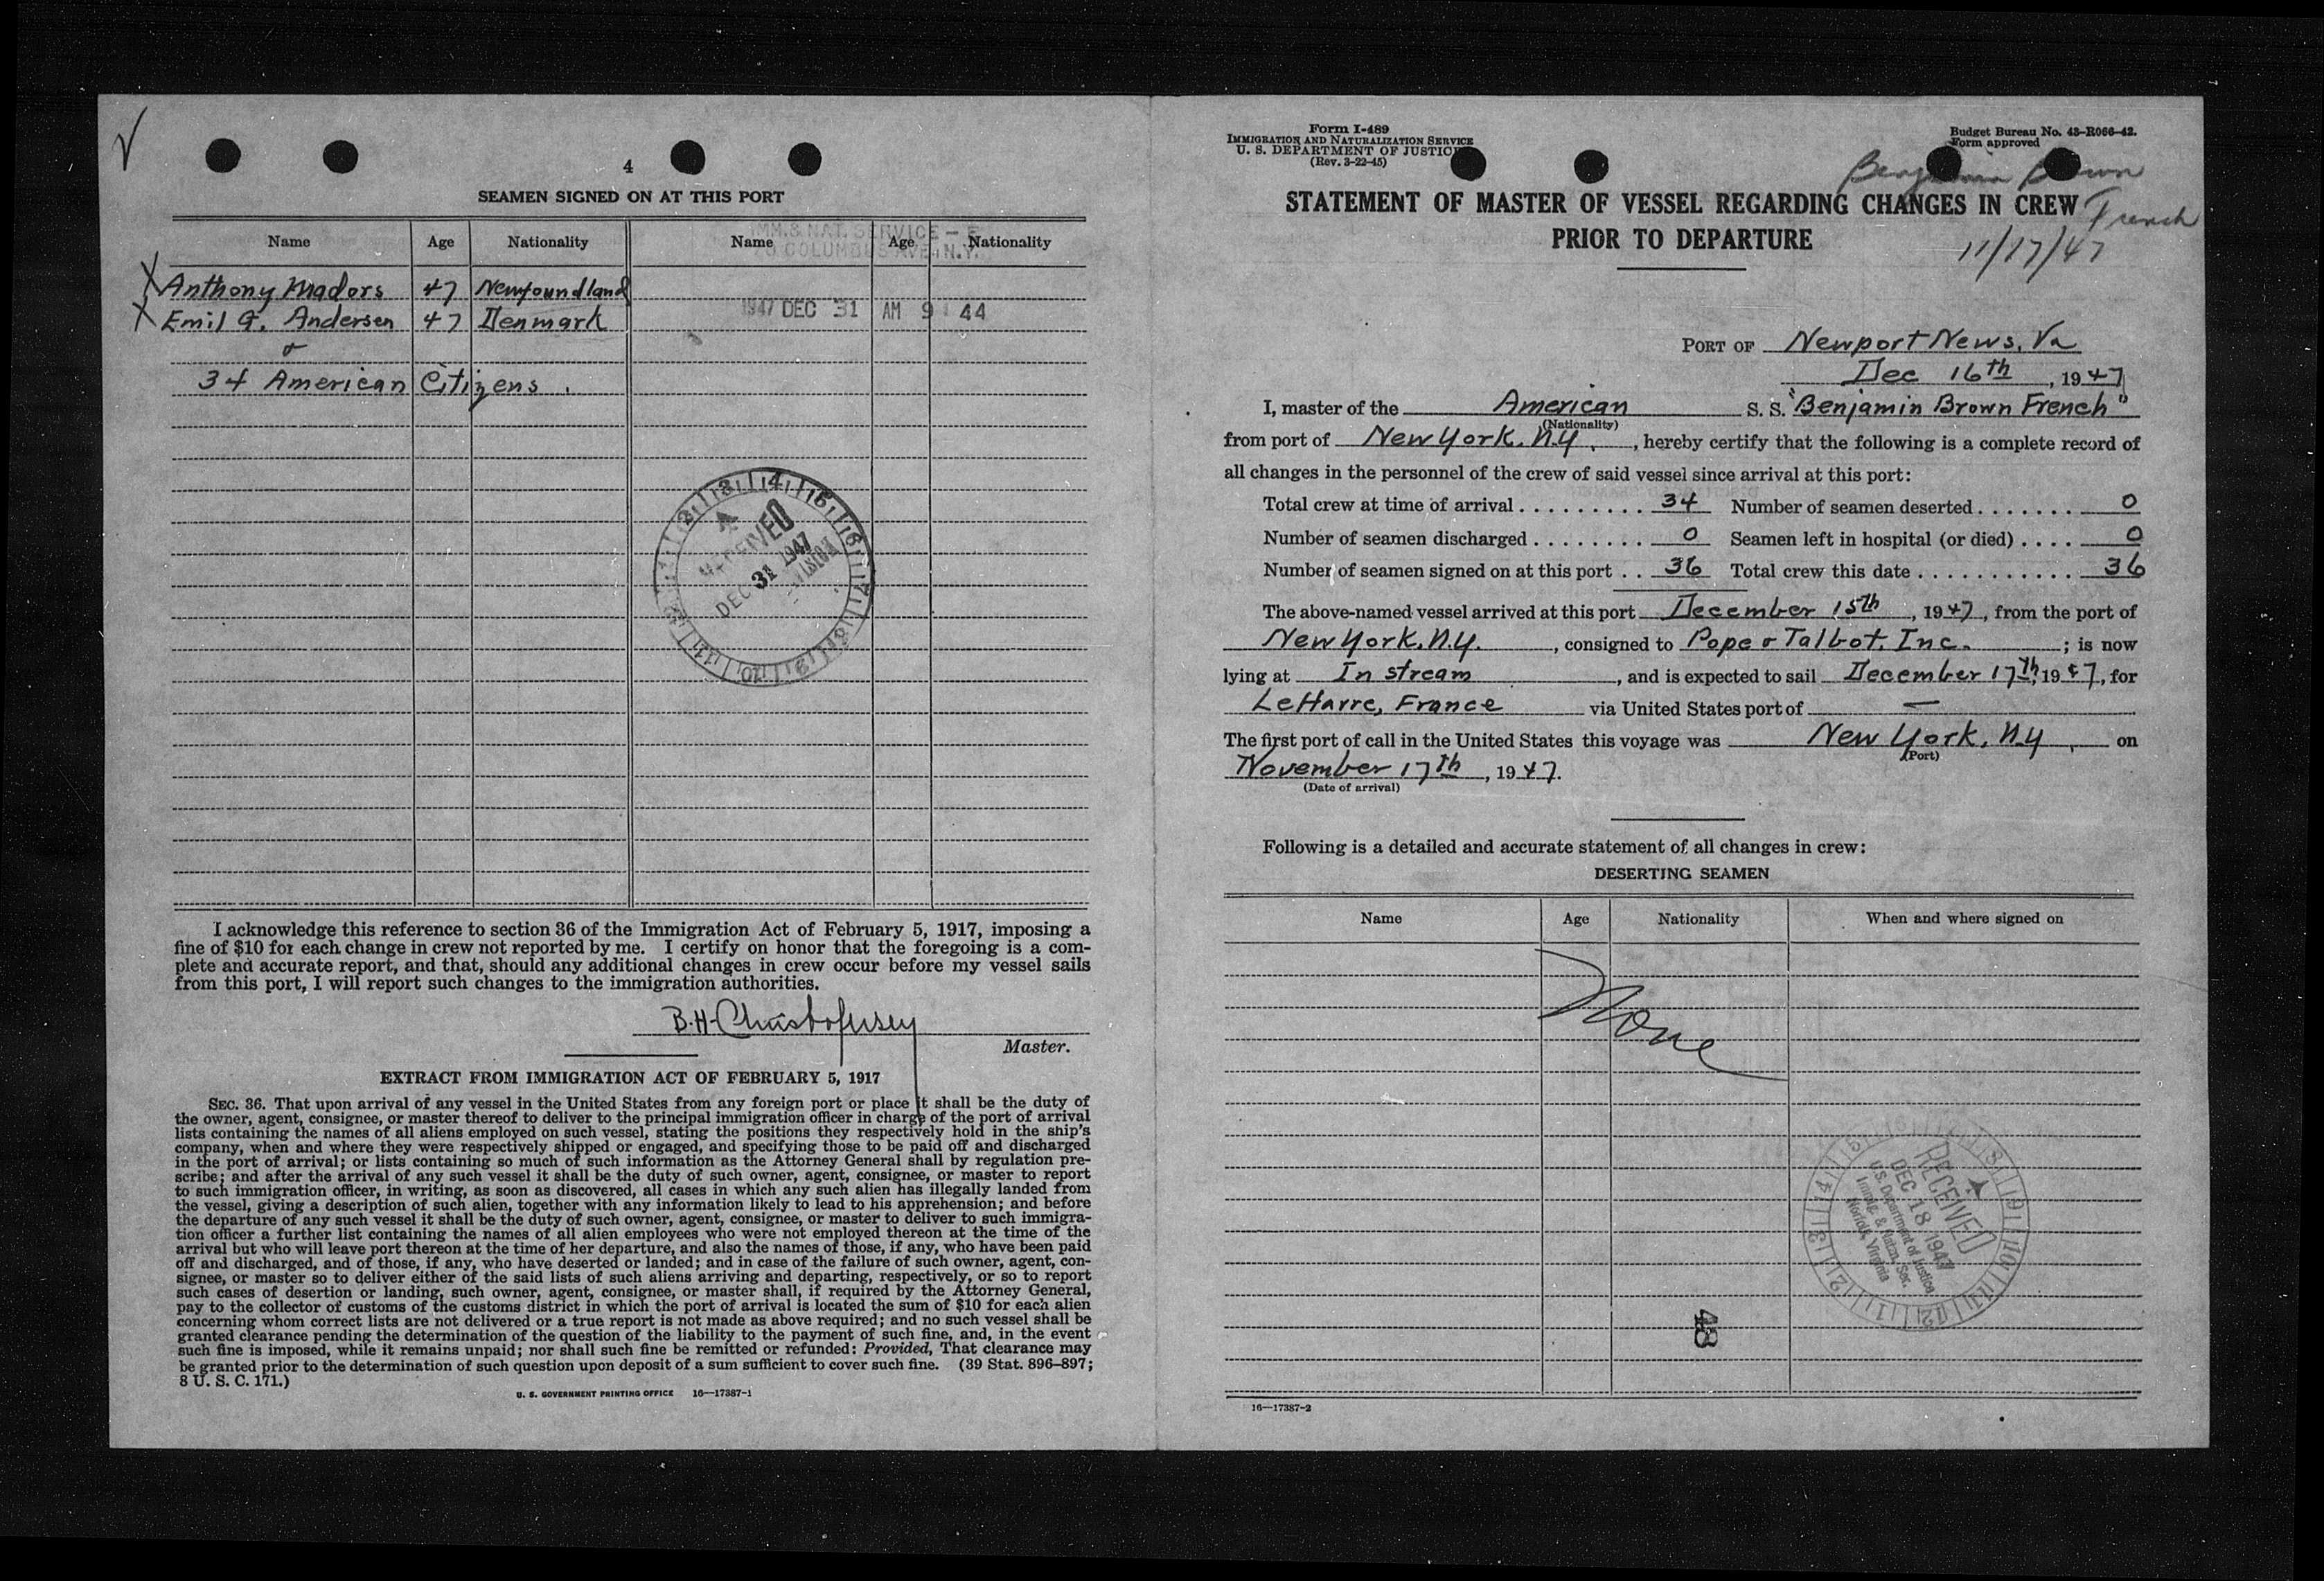 4
SEAMEN SIGNED ON AT THIS PORT
Name Age Nationality Name Age Nationality
IMM. & NAT. SERVICE –
70 COLUMBUS AVE. N.Y.
X Anthony Madors 47 Newfoundland
1947 DEC 31 AM 9 44
X Emil G. Andersen 47 Denmark
&
34 American Citizens.
RECEIVED
DEC 31 1947
I acknowledge this reference to section 36 of the Immigration Act of February 5, 1917, imposing a
fine of $10 for each change in crew not reported by me. I certify on honor that the foregoing is a com-
plete and accurate report, and that, should any additional changes in crew occur before my vessel sails
from this port, I will report such changes to the immigration authorities.
B.H. Christofersen
Master.
EXTRACT FROM IMMIGRATION ACT OF FEBRUARY 5, 1917
SEC. 36. That upon arrival of any vessel in the United States from any foreign port or place it shall be the duty of
the owner, agent, consignee, or master thereof to deliver to the principal immigration officer in charge of the port of arrival
lists containing the names of all aliens employed on such vessel, stating the positions they respectively hold in the ship's
company, when and where they were respectively shipped or engaged, and specifying those to be paid off and discharged
in the port of arrival; or lists containing so much of such information as the Attorney General shall by regulation pre-
scribe; and after the arrival of any such vessel it shall be the duty of such owner, agent, consignee, or master to report
to such immigration officer, in writing, as soon as discovered, all cases in which any such alien has illegally landed from
the vessel, giving a description of such alien, together with any information likely to lead to his apprehension; and before
the departure of any such vessel it shall be the duty of such owner, agent, consignee, or master to deliver to such immigra-
tion officer a further list containing the names of all alien employees who were not employed thereon at the time of the
arrival but who will leave port thereon at the time of her departure, and also the names of those, if any, who have been paid
off and discharged, and of those, if any, who have deserted or landed; and in case of the failure of such owner, agent, con-
signee, or master so to deliver either of the said lists of such aliens arriving and departing, respectively, or so to report
such cases of desertion or landing, such owner, agent, consignee, or master shall, if required by the Attorney General,
pay to the collector of customs of the customs district in which the port of arrival is located the sum of $10 for each alien
concerning whom correct lists are not delivered or a true report is not made as above required; and no such vessel shall be
granted clearance pending the determination of the question of the liability to the payment of such fine, and, in the event
such fine is imposed, while it remains unpaid; nor shall such fine be remitted or refunded: Provided, That clearance may
be granted prior to the determination of such question upon deposit of a sum sufficient to cover such fine. (39 Stat. 896–897;
8 U. S. C. 171.)
U. S. GOVERNMENT PRINTING OFFICE 16—17387-1
Form I-489
IMMIGRATION AND NATURALIZATION SERVICE
U. S. DEPARTMENT OF JUSTICE
(Rev. 3-22-45)
Budget Bureau No. 43-R066-42.
Form approved
Benjamin Brown
French
11/17/47
STATEMENT OF MASTER OF VESSEL REGARDING CHANGES IN CREW
PRIOR TO DEPARTURE
PORT OF Newport News, Va
Dec 16th, 1947
I, master of the American S. S. "Benjamin Brown French"
(Nationality)
from port of New York, N.Y., hereby certify that the following is a complete record of
all changes in the personnel of the crew of said vessel since arrival at this port:
Total crew at time of arrival . . . . . . . . . 34 Number of seamen deserted . . . . . . . 0
Number of seamen discharged . . . . . . . . 0 Seamen left in hospital (or died) . . . . 0
Number of seamen signed on at this port . . 36 Total crew this date . . . . . . . . . . . . 36
The above-named vessel arrived at this port December 15th, 1947, from the port of
New York, N.Y., consigned to Pope & Talbot, Inc.; is now
lying at In stream, and is expected to sail December 17th, 1947, for
LeHavre, France via United States port of —
The first port of call in the United States this voyage was New York, N.Y., on
(Port)
November 17th, 1947.
(Date of arrival)
Following is a detailed and accurate statement of all changes in crew:
DESERTING SEAMEN
Name Age Nationality When and where signed on
None
RECEIVED
DEC 18 1947
U.S. Department of Justice
Immig. & Natzn. Ser.
Norfolk, Virginia
48
16—17387-2